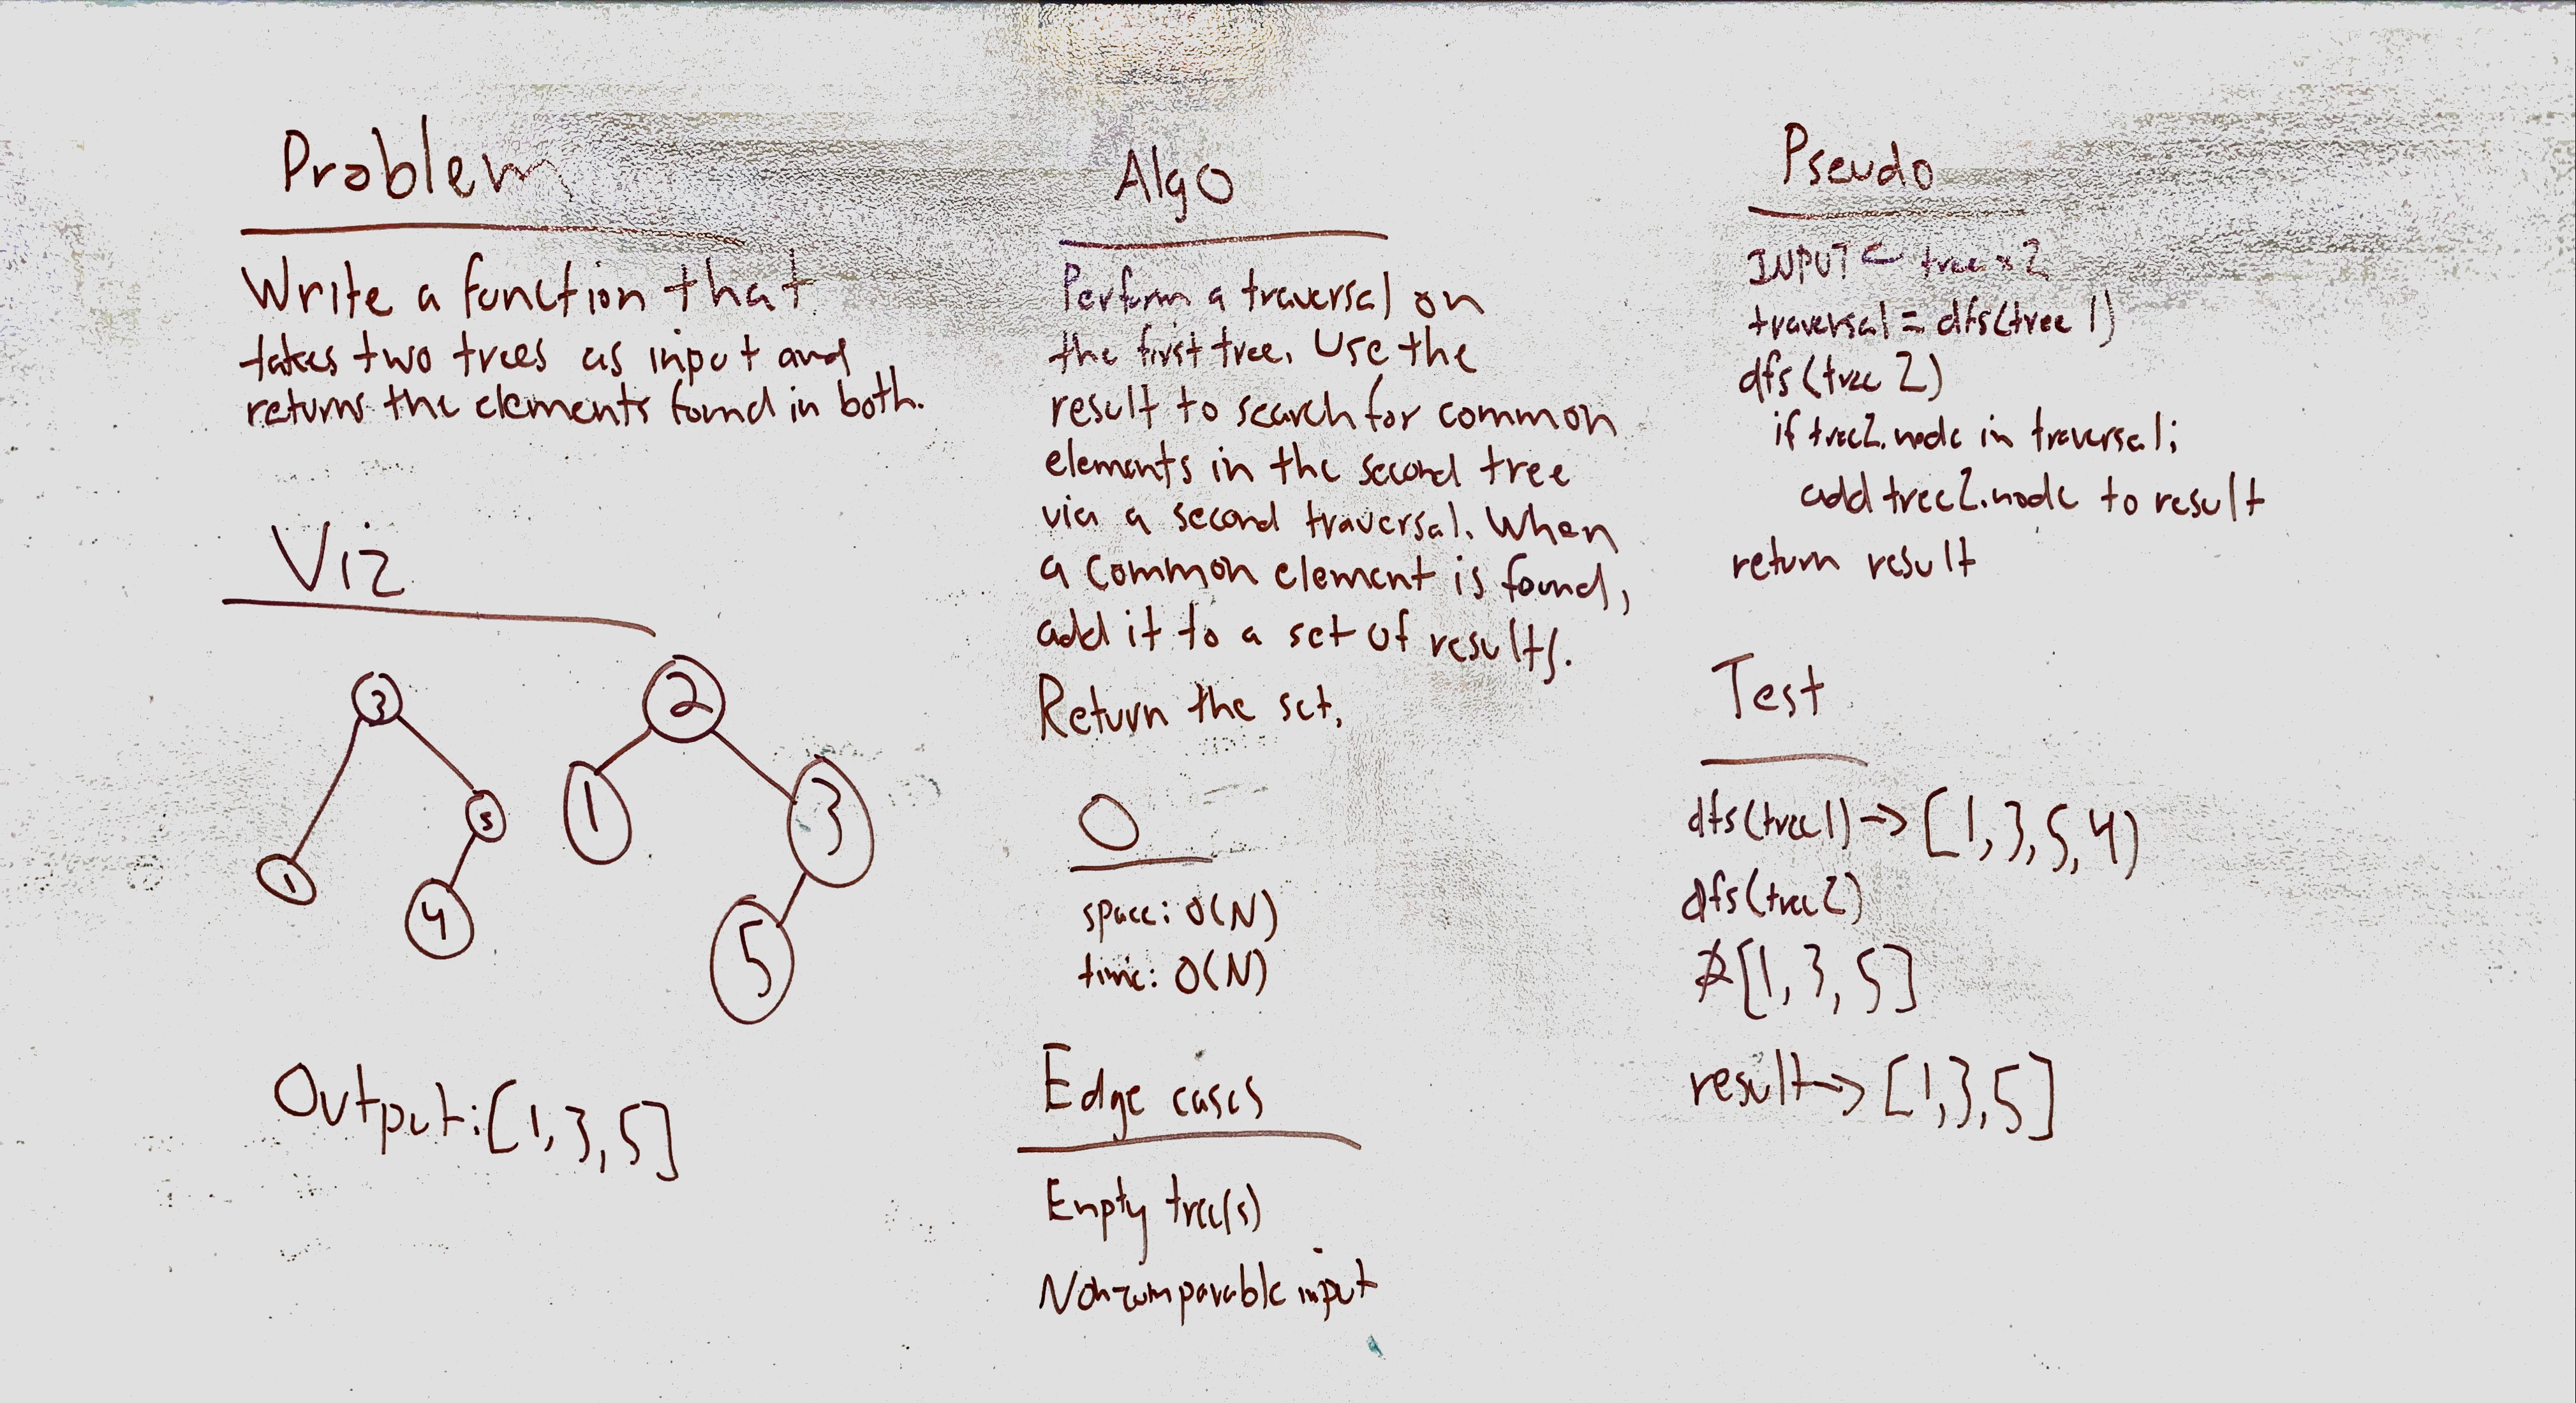 Problem
Write a function that
takes two trees as input and
returns the elements found in both.
Viz
3
1
5
4
2
1
3
5
Output: [1, 3, 5]
Algo
Perform a traversal on
the first tree. Use the
result to search for common
elements in the second tree
via a second traversal. When
a common element is found,
add it to a set of results.
Return the set.
O
space: O(N)
time: O(N)
Edge cases
Empty tree(s)
Non-comparable input
Pseudo
INPUT ← tree x 2
traversal = dfs(tree 1)
dfs(tree 2)
if tree2.node in traversal;
add tree2.node to result
return result
Test
dfs(tree1) → [1, 3, 5, 4)
dfs(tree2)
[1, 3, 5]
result → [1, 3, 5]